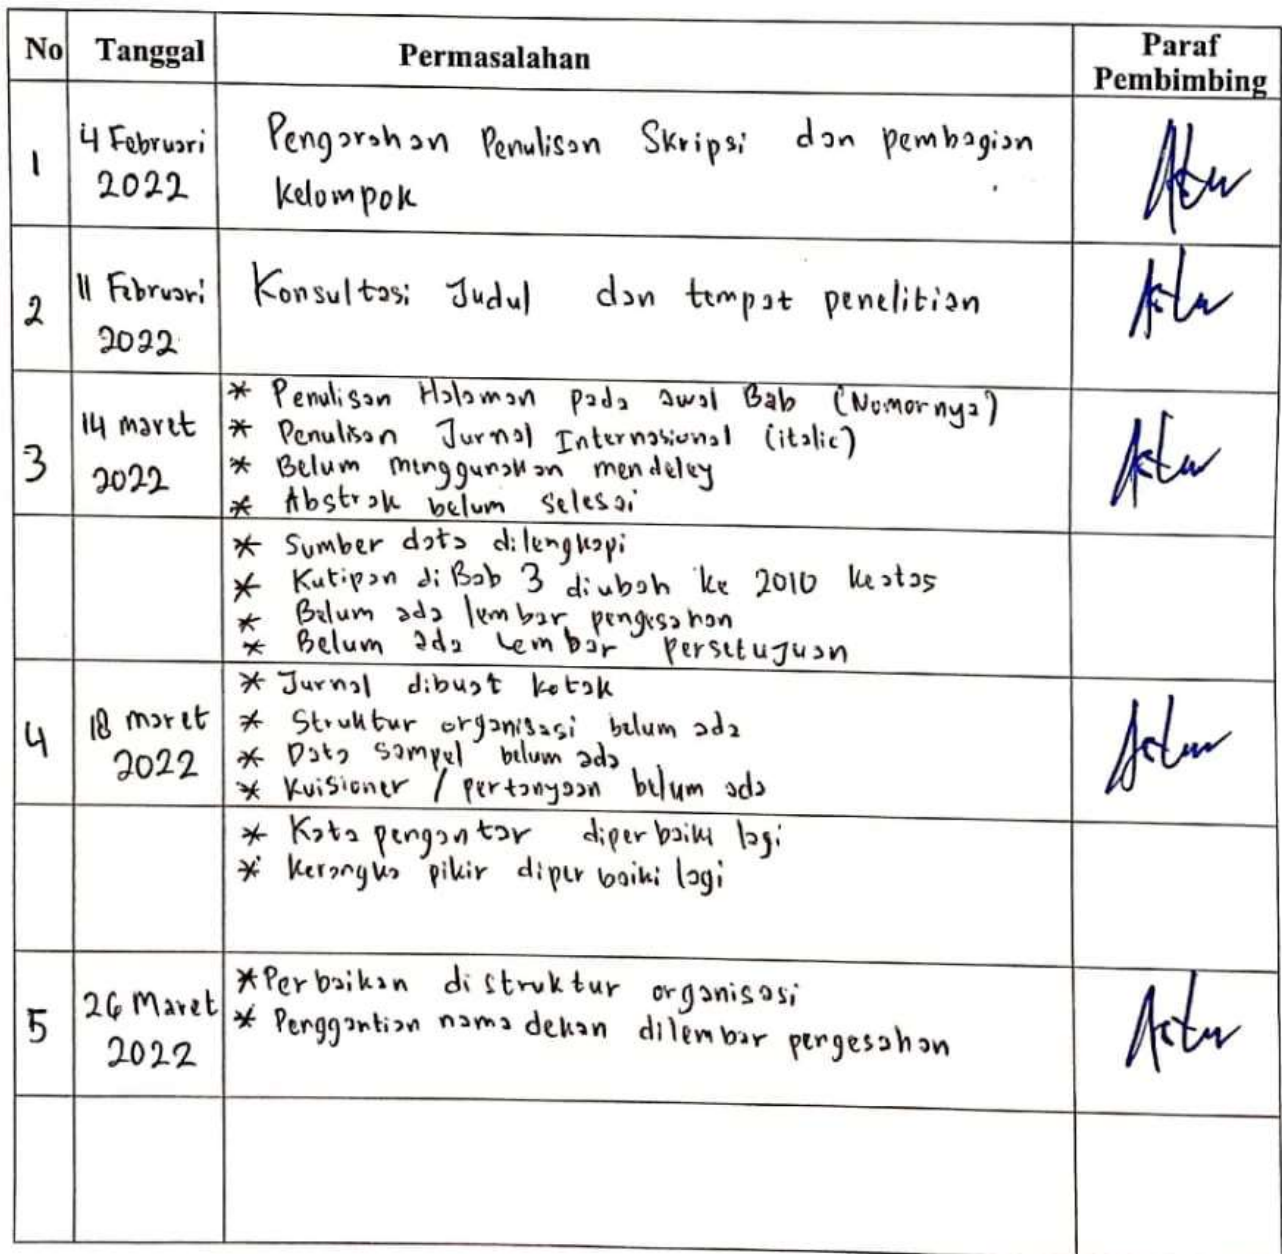 No Tanggal Permasalahan Paraf Pembimbing
1 4 Februari 2022 Pengarahan Penulisan Skripsi dan pembagian
Kelompok
2 11 Februari 2022 Konsultasi Judul dan tempat penelitian
3 14 maret 2022 * Penulisan Halaman pada awal Bab (Nomornya)
* Penulisan Jurnal Internasional (italic)
* Belum menggunakan mendeley
* Abstrak belum selesai
* Sumber data dilengkapi
* Kutipan di Bab 3 diubah ke 2010 keatas
* Belum ada lembar pengesahan
* Belum ada Lembar persetujuan
4 18 maret 2022 * Jurnal dibuat kotak
* Struktur organisasi belum ada
* Data sampel belum ada
* Kuisioner / pertanyaan belum ada
* Kata pengantar diperbaiki lagi
* Kerangka pikir diperbaiki lagi
5 26 Maret 2022 * Perbaikan di struktur organisasi
* Penggantian nama dekan dilembar pergesahan